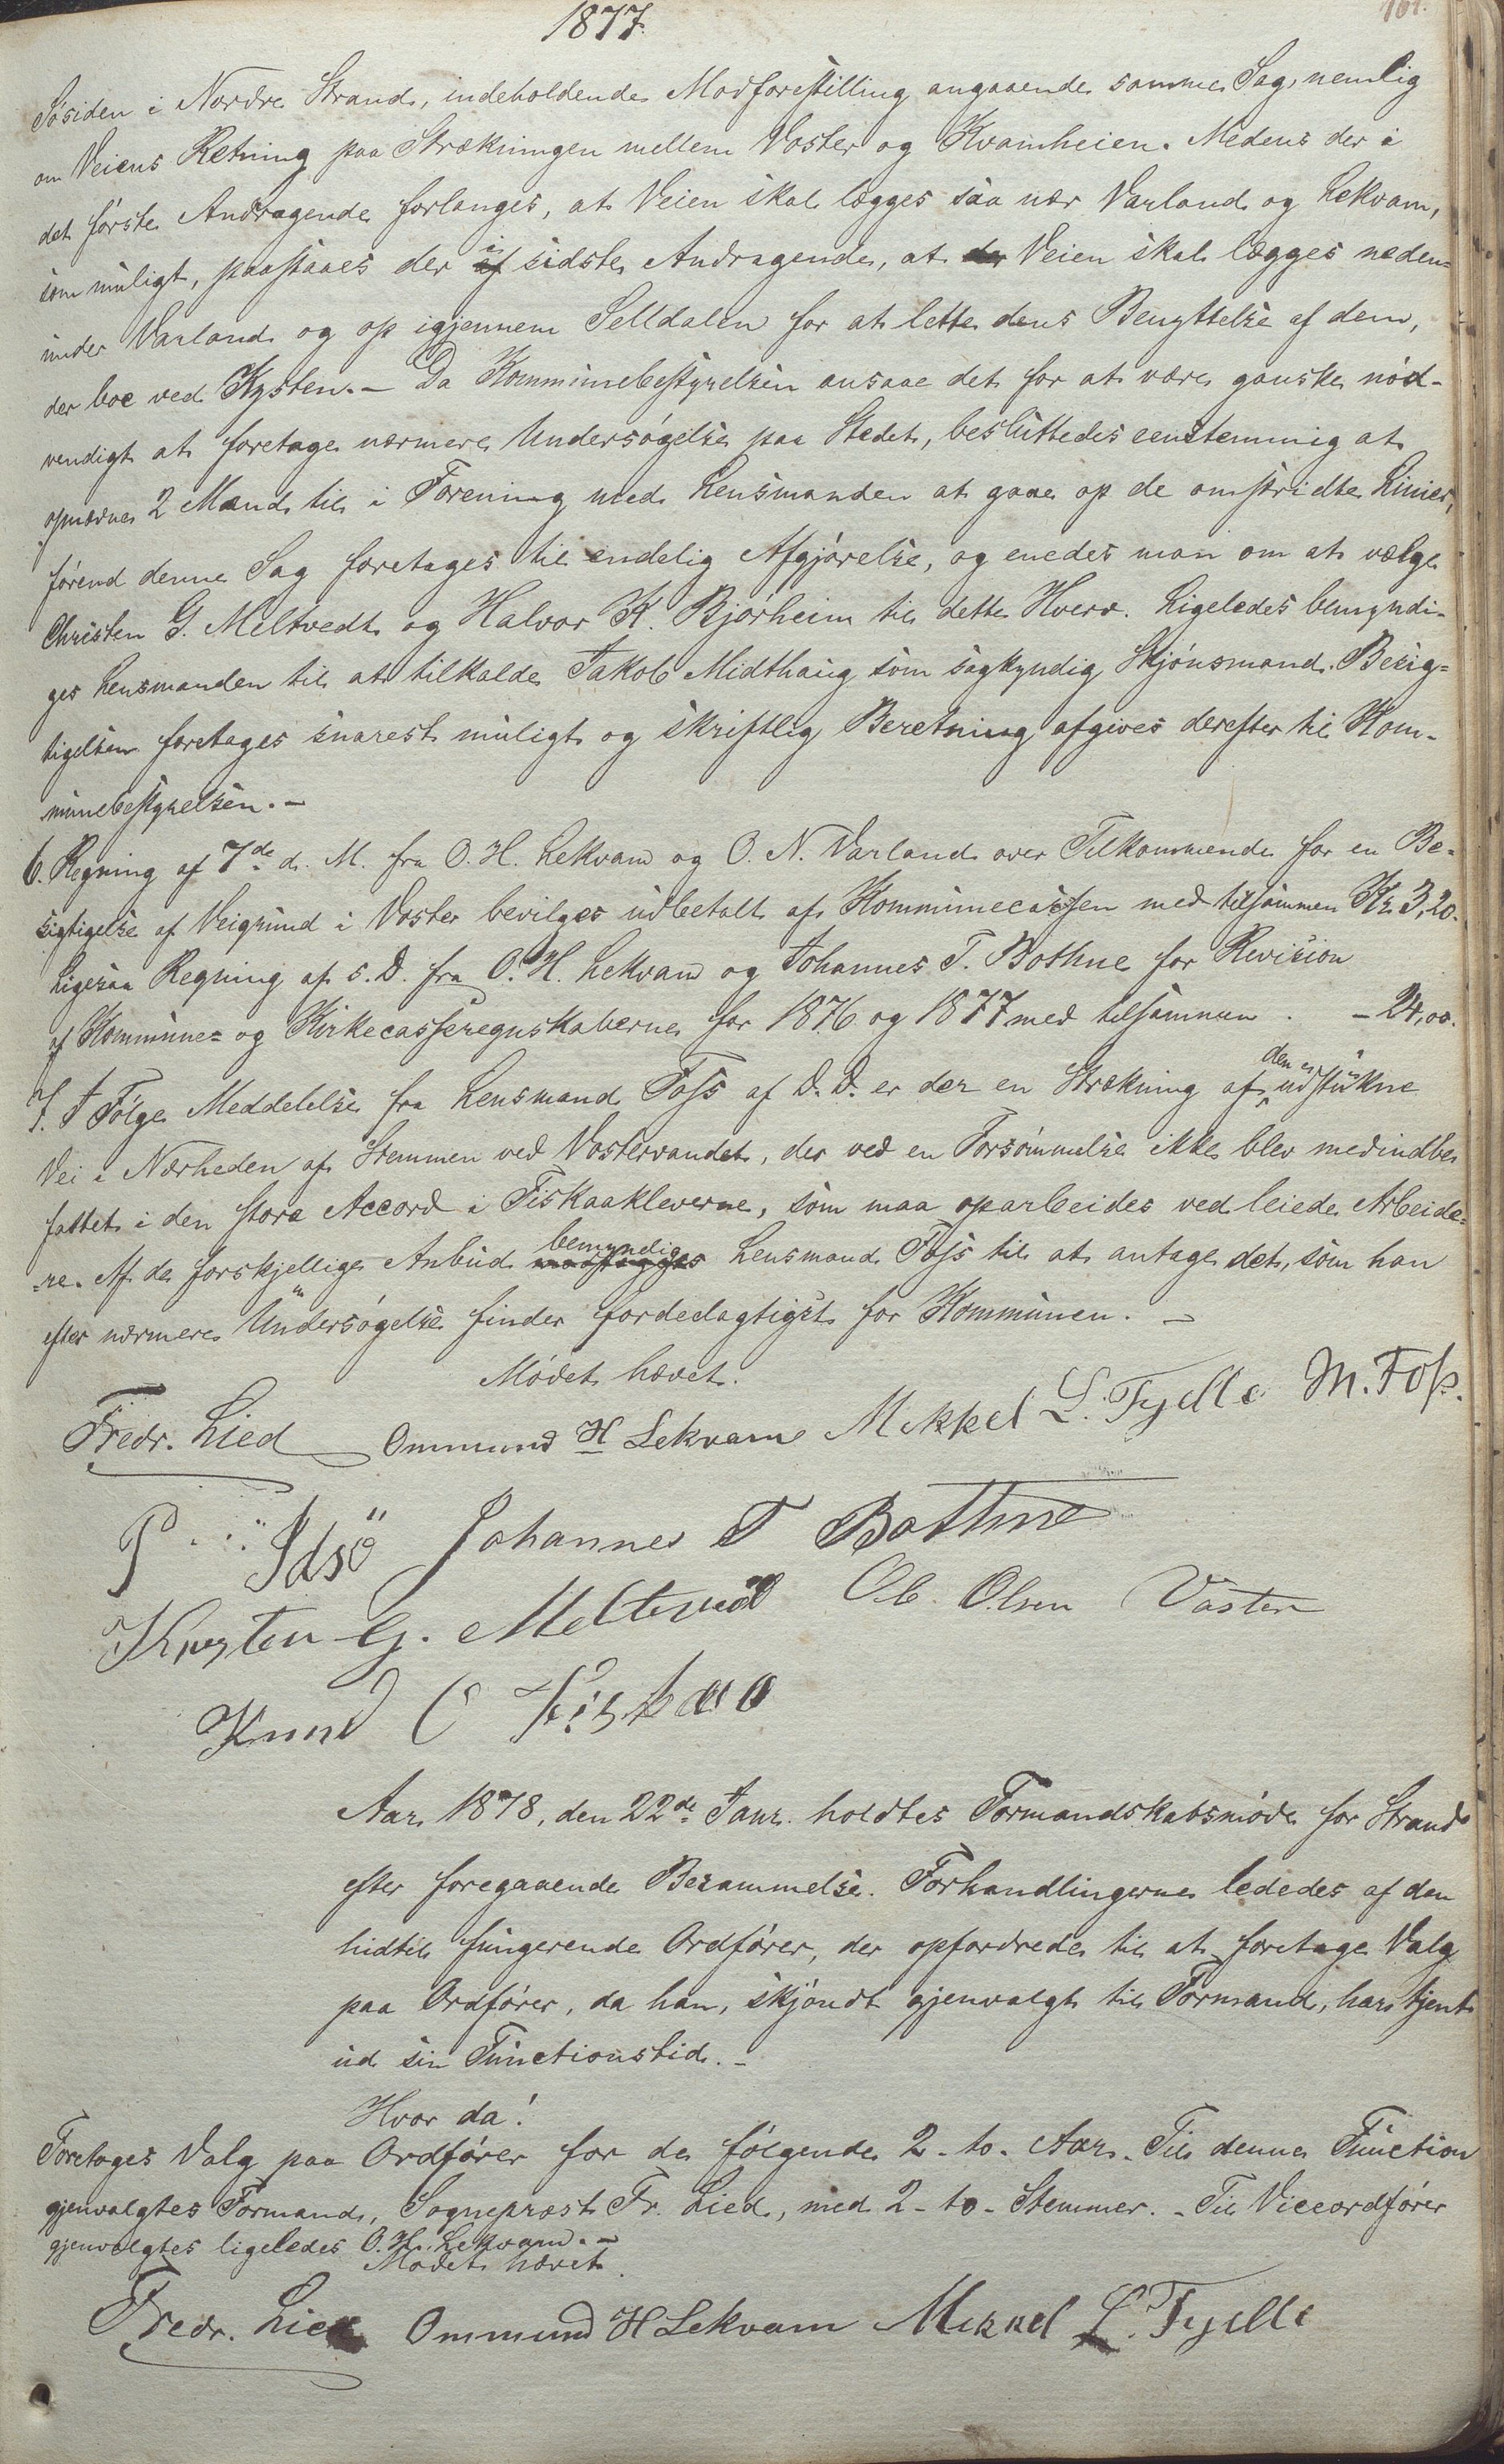 1877.
161.
Søsiden i Nordre Strand, indeholdende Modforestilling angaaende samme Sag, nemlig
om Veiens Retning paa Strækningen mellem Voster og Kvamheien. Medens der i
det første Andragende forlanges, at Veien skal lægges saa nær Varland og Lekvam,
som muligt, paastaaes der i sidste Andragende, at Veien skal lægges neden-
under Varland og op igjennem Selldalen for at lette dens Benyttelse af dem,
der boe ved Kysten. – Da Kommunebestyrelsen ansaae det for at være ganske nød-
vendigt at foretage nærmere Undersøgelse paa Stedet, besluttedes eenstemmig at
opnævne 2 Mænd til i Forening med Lensmanden at gaae op de omstridte Linier,
førend denne Sag foretages til endelig Afgjørelse, og enedes man om at vælge
Christen G. Meltvedt og Halvor K. Bjørheim til dette Hverv. Ligeledes bemyndi-
ges Lensmanden til at tilkalde Jakob Midthaug som sagkyndig Skjønsmand. Besig-
tigelsen foretages snarest muligt og skriftlig Beretning afgives derefter til Kom-
munebestyrelsen. –
6. Regning af 7de d. M. fra O. H. Lekvam og O. N. Varland over Tilkommende for en Be-
sigtigelse af Veigrund i Voster bevilges udbetalt af Kommunecassen med tilsammen Kr. 3,20.
Ligesaa Regning af s. D. fra O. H. Lekvam og Johannes T. Bothne for Revision
af Kommune- og Kirkecasseregnskaberne for 1876 og 1877 med tilsammen . – 24,00.
7. I Følge Meddelelse fra Lensmand Foss af D. D. er der en Strækning af den udstukne
Vei i Nærheden af Stemmen ved Vostervandet, der ved en Forsømmelse ikke blev medindbe
fattet i den store Accord i Fiskaakleverne, som maa oparbeides ved leiede Arbeide-
re. Af de forskjellige Anbud bemyndiges Lensmand Foss til at antage det, som han
efter nærmere Undersøgelse finder fordelagtigst for Kommunen. –
Mødet hævet.
Fredr. Lied Ommund H Lekvam Mikkel L. Tjelle M. Foss.
P Idsö Johannes T Bothne
Kresten G. Meltved Ole Olsen Voster
Knud O Fiskaa
Aar 1878, den 22de Janr. holdtes Formandskabsmøde for Strand
efter foregaaende Berammelse. Forhandlingerne lededes af den
hidtil fungerende Ordfører, der opfordrede til at foretage Valg
paa Ordfører, da han, skjøndt gjenvalgt til Formand, har tjent
ud sin Functionstid. –
Hvor da!
Foretages Valg paa Ordfører for de følgende 2 - to - Aar. Til denne Function
gjenvalgtes Formand, Sogneprest Fr. Lied, med 2 - to - Stemmer. – Til Viceordfører
gjenvalgtes ligeledes O. H. Lekvam. –
Mødet hævet.
Fredr. Lied Ommund H Lekvam Mikkel L. Tjelle